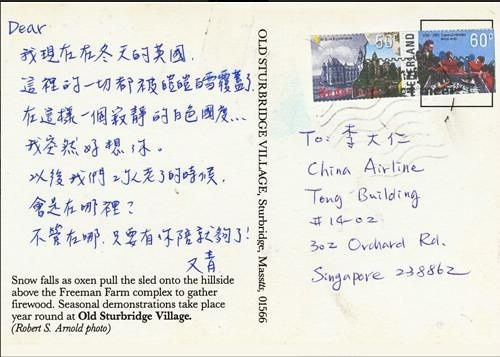 Dear
我現在在冬天的英國.
這裡的一切都被皚皚白雪覆蓋了.
在這樣一個寂靜的白色國度...
我突然好想你.
以後我們2人老了的時候.
會是在哪裡?
不管在哪.只要有你陪就夠了!
又青.
Snow falls as oxen pull the sled onto the hillside
above the Freeman Farm complex to gather
firewood. Seasonal demonstrations take place
year round at Old Sturbridge Village.
(Robert S. Arnold photo)
OLD STURBRIDGE VILLAGE, Sturbridge, Massts, 01566
50c
NEDERLAND
60c
To: 李大仁
China Airline
Tong Building
#14-02
302 Orchard Rd.
Singapore 238862